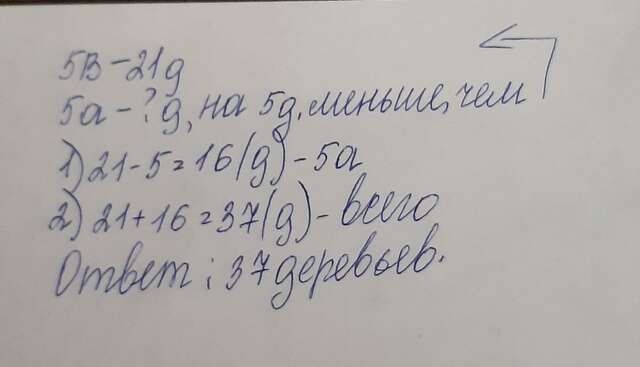 5В - 21д
5а - ? д, на 5д. меньше, чем
1) 21 - 5 = 16 (д) - 5а
2) 21 + 16 = 37 (д) - всего
Ответ: 37 деревьев.